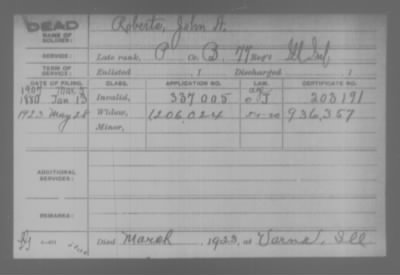 DEAD
NAME OF SOLDIER: Roberts, John A.
SERVICE: Late rank, P Co. B 77 Reg't Ill Inf
TERM OF SERVICE: Enlisted , 1 Discharged , 1
DATE OF FILING. CLASS. APPLICATION NO. LAW. CERTIFICATE NO.
1907 Mar.
1880 Jan 13 Invalid, 337005 203191
1923 May 28 Widow, 1206024 936,357
Minor,
ADDITIONAL SERVICES:
REMARKS:
Died March , 1923, at Varna, Ill.